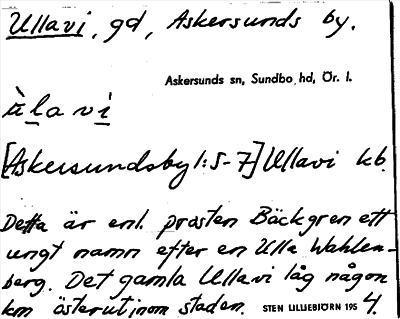 Ullavi, gd, Askersunds by.
Askersunds sn, Sundbo hd, Ör. l.
ùlavi
[Askersundsby 1:5-7] Ullavi kb.
Detta är enl. prosten Bäckgren ett
ungt namn efter en Ulla Wahlen-
berg. Det gamla Ullavi låg någon
km österut inom staden. STEN LILLIEBJÖRN 1954.